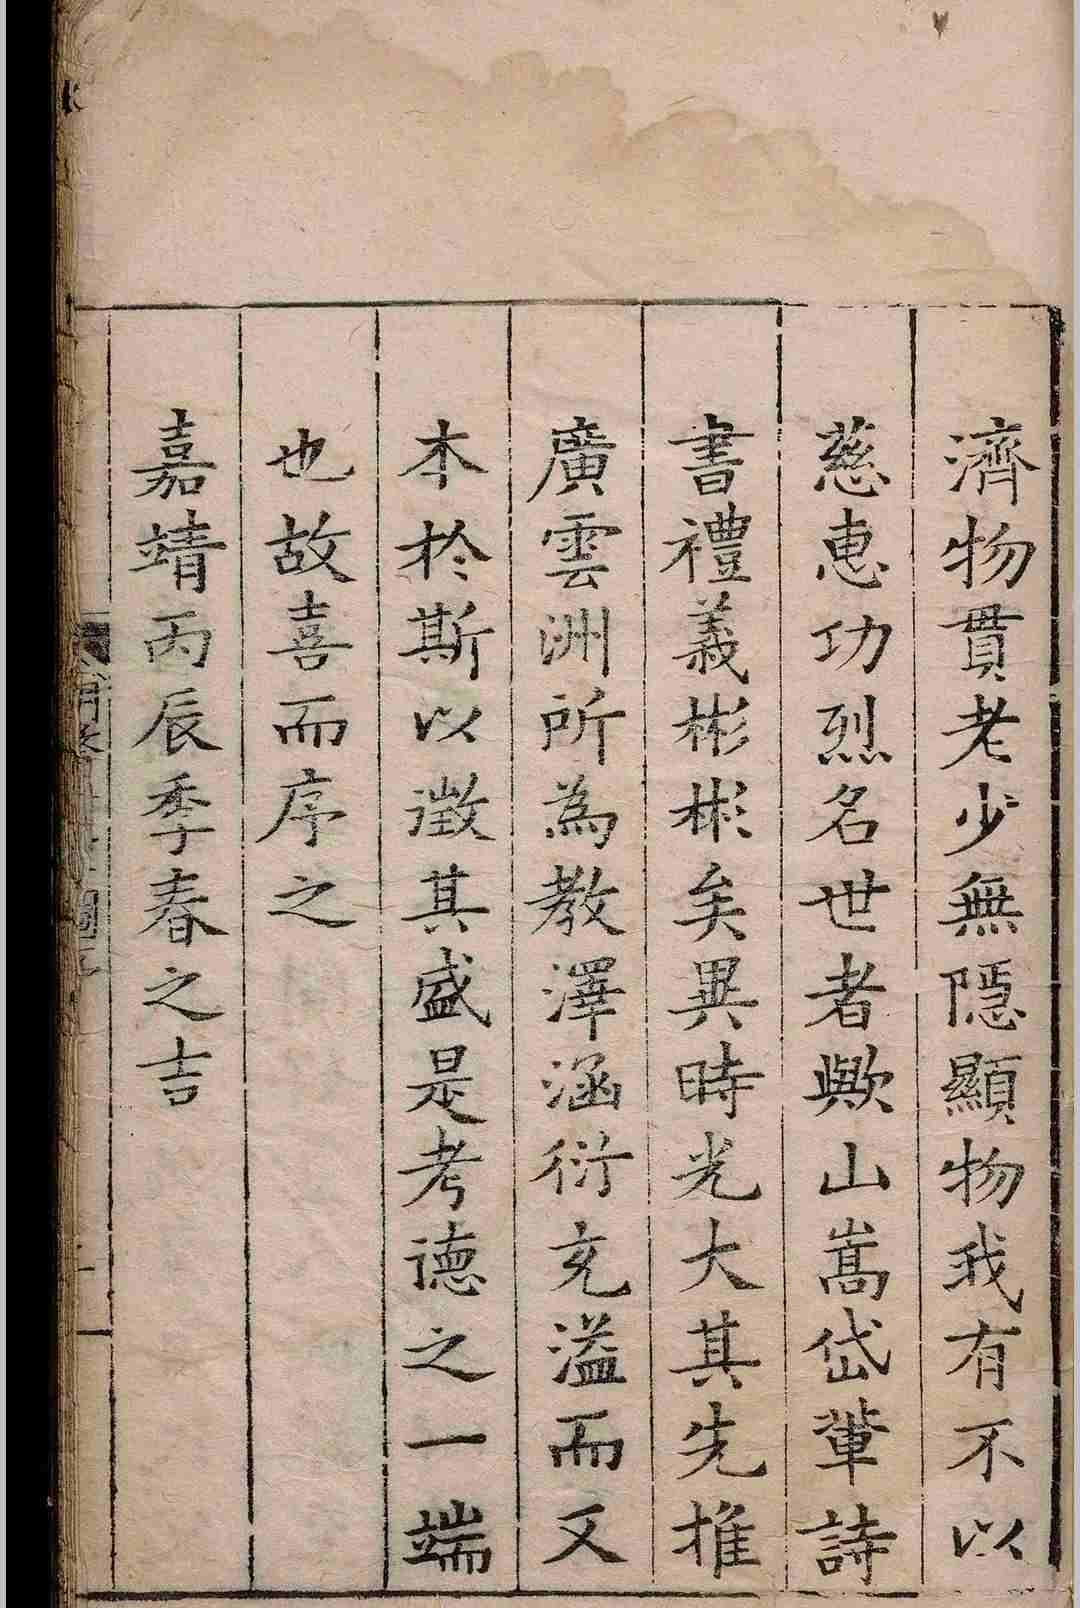 濟物貫老少無隱顯物我有不以
慈惠功烈名世者歟山嵩岱輩詩
書禮義彬彬矣異時光大其先推
廣雲洲所為教澤涵衍充溢而又
本於斯以徵其盛是考德之一端
也故喜而序之
嘉靖丙辰季春之吉